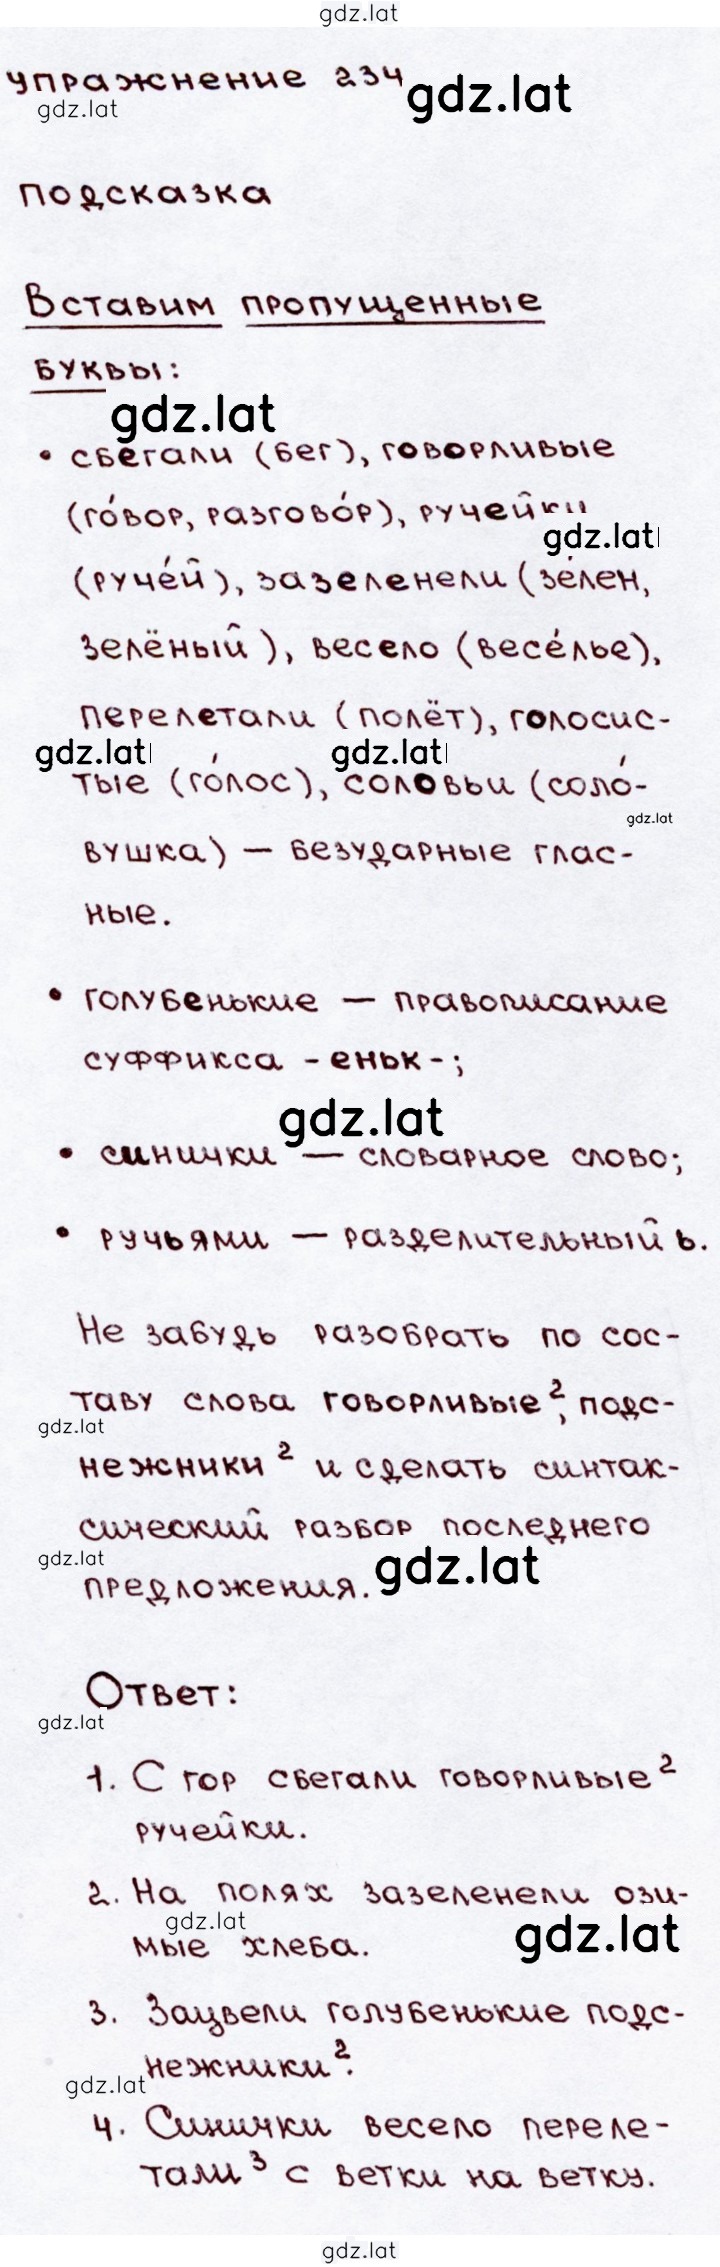 gdz.lat
упражнение 234
gdz.lat
gdz.lat
подсказка
Вставим пропущенные
буквы:
gdz.lat
• сбегали (бег), говорливые
(го́вор, разгово́р), ручейки
gdz.lat
(руче́й), зазеленели (зе́лен,
зелёный), весело (весе́лье),
перелетали (полёт), голосис-
gdz.lat gdz.lat
тые (го́лос), соловьи (соло́-
gdz.lat
вушка) — безударные глас-
ные.
• голубенькие — правописание
суффикса -еньк-;
gdz.lat
• синички — словарное слово;
• ручьями — разделительный ь.
Не забудь разобрать по сос-
таву слова говорливые², подс-
gdz.lat
нежники² и сделать синтак-
сический разбор последнего
gdz.lat gdz.lat
предложения.
Ответ:
gdz.lat
1. С гор сбегали говорливые²
ручейки.
2. На полях зазеленели ози-
gdz.lat gdz.lat
мые хлеба.
3. Зацвели голубенькие подс-
нежники².
gdz.lat
4. Синички весело переле-
тали³ с ветки на ветку.
gdz.lat